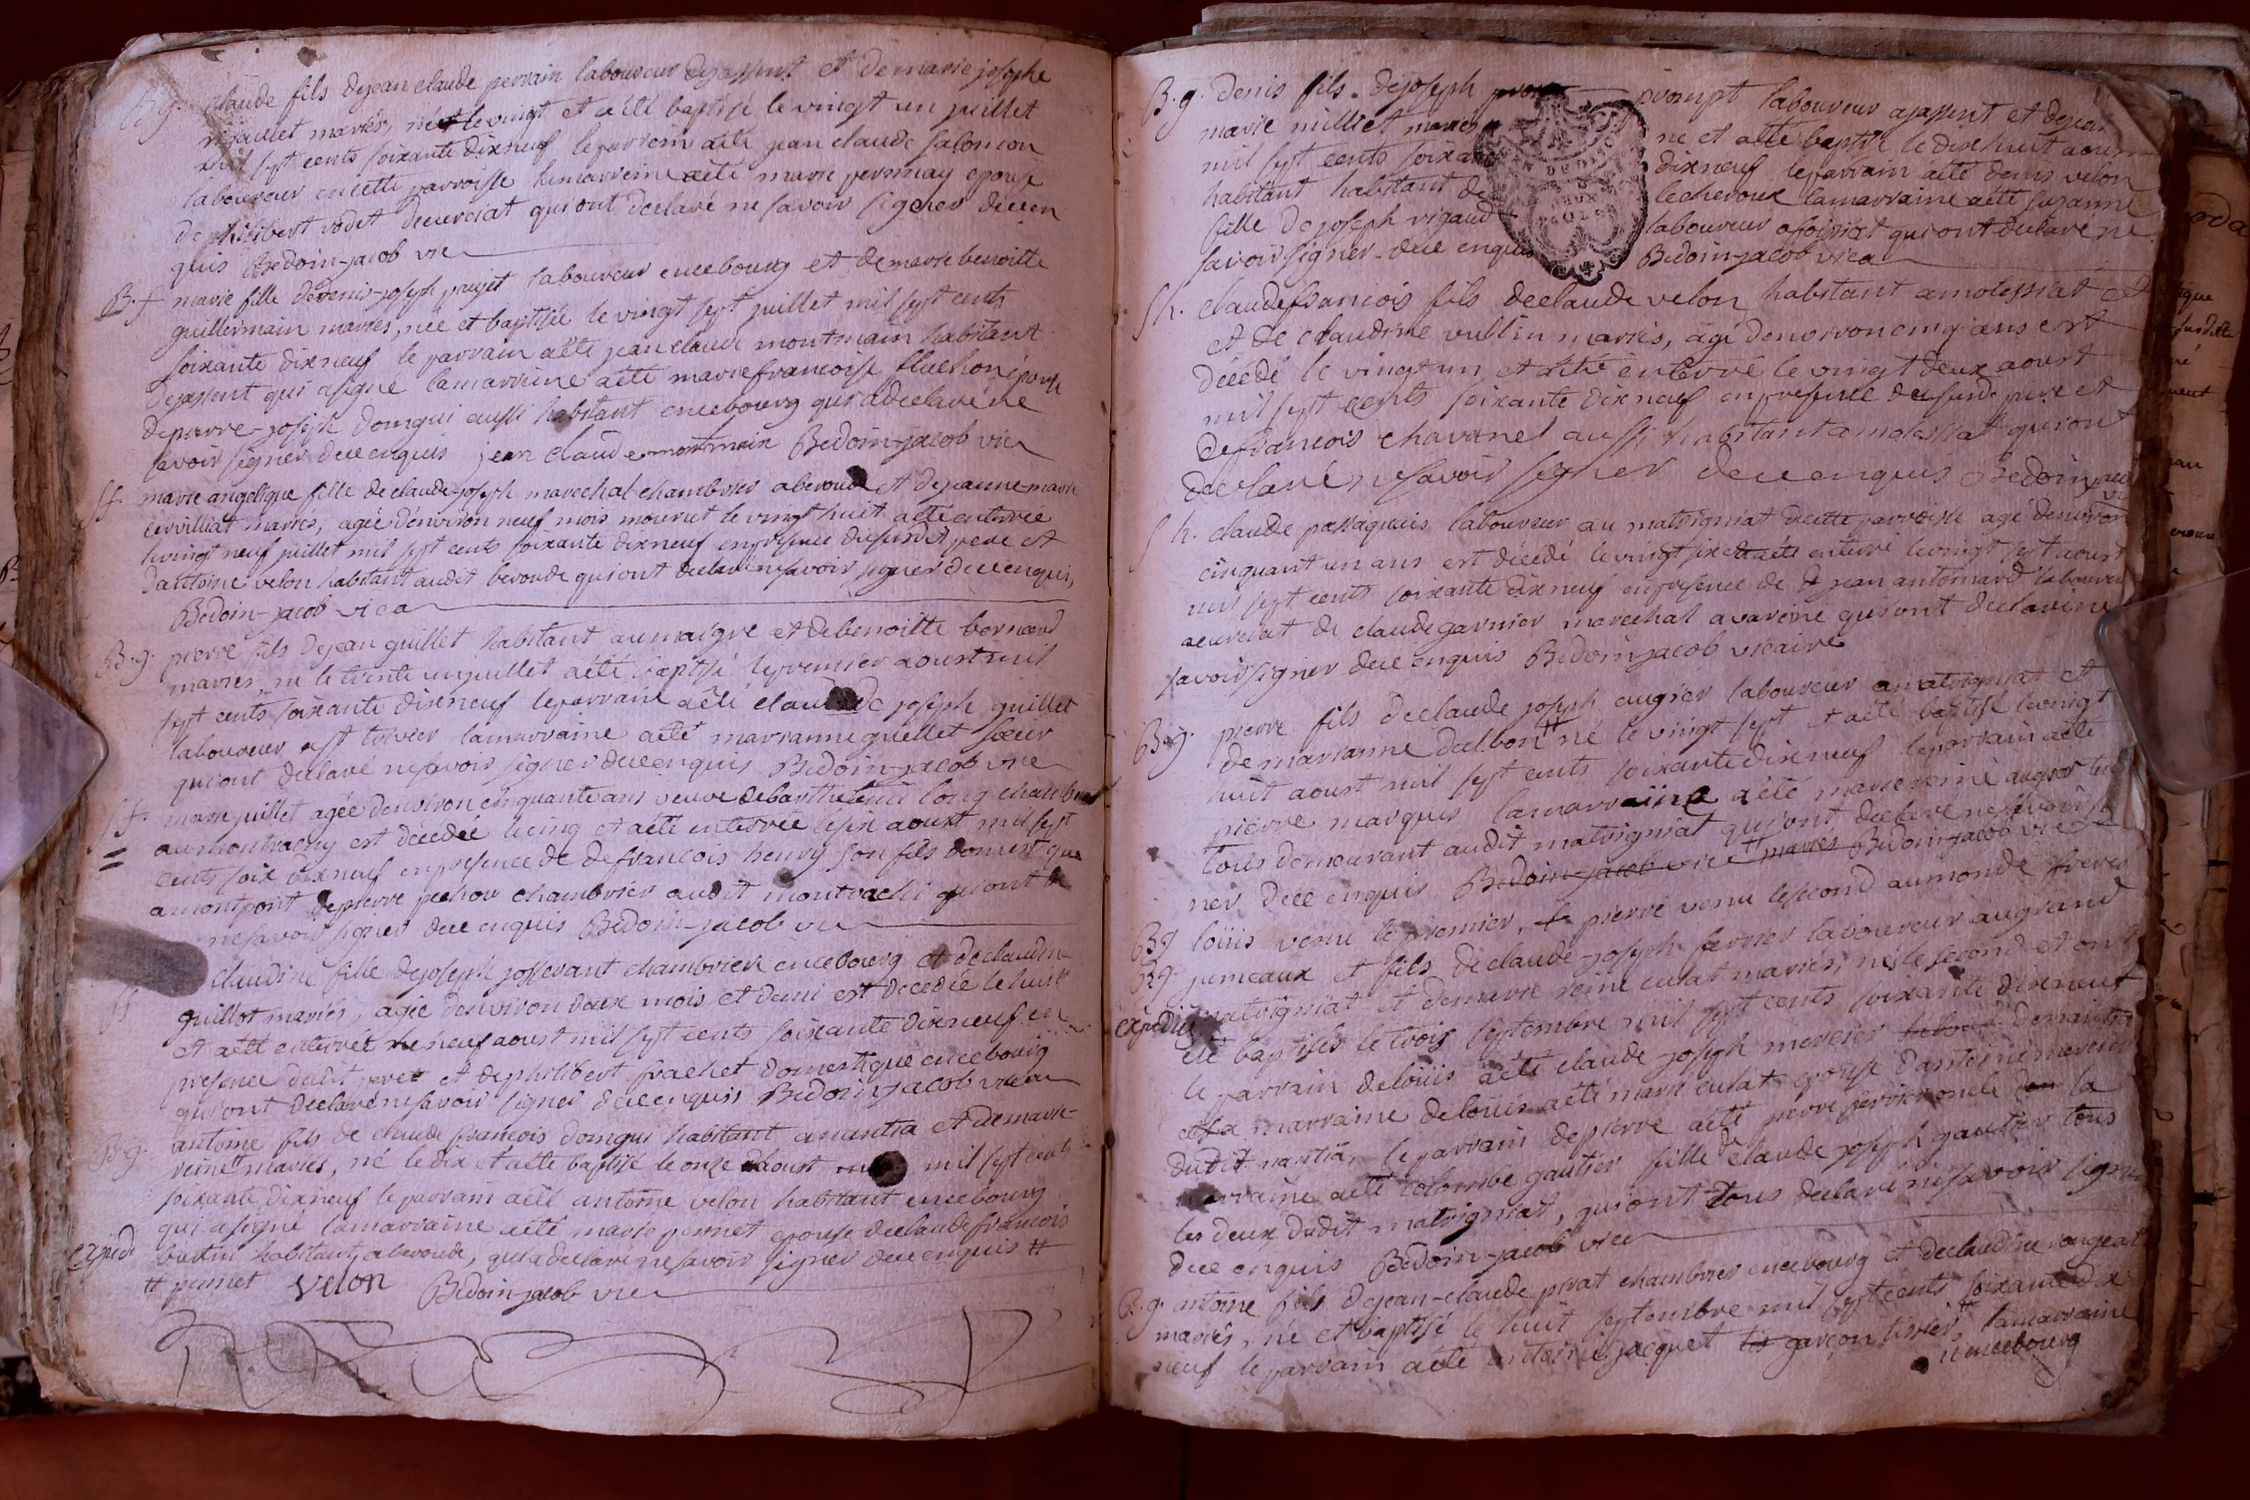 B.g. claude fils dejean claude perrain laboureur dejassent et demarie josephe
rigaudet mariés, né le vingt et aété baptisé le vingt un juillet
mil sept cents soixante dixneuf le parrein aété jean claude salomon
laboureur encette parroisse lamarreine aété marie personnay epouse
dephilibert vodet decurciat quiont declaré ne savoir signer deceen
quis Bedoin-jacob vic
B.f marie fille dedenis-joseph puget laboureur encebourg et demarie benoitte
guillermain mariés, née et baptisée le vingt sept juillet mil sept cents
soixante dixneuf le parrain aété jean claude montmain habitant
dejassent qui asigné lamarreine aété mariefrancoise epouse
depierre-joseph domgui aussi habitant encebourg qui adeclaré ne
savoir signer dece enquis jean claude montmain Bedoin-jacob vic
Sf. marie angelique fille declaude-joseph marechal chambrier aberoude et dejeannemarie
cervilliat mariés, agée d'environ neuf mois mourut le vingt huit aété enterrée
levingt neuf juillet mil sept cents soixante dixneuf enpresence dususdit pere et
dantoine velon habitant audit beroude quiont declaré nesavoir signer dece enquis,
Bedoin-jacob vica
B.g. pierre fils dejean guillet habitant aumaigre et debenoitte bernard
mariés né le trente unjuillet aété baptisé lepremier aoust mil
sept cents soixante dixneuf leparrain aété claude joseph guillet
laboureur ast trivier lamarraine aété marianne guillet soeur
quiont declaré nesavoir signer dece enquis Bedoin-jacob vic
Sf. marie juillet agée denviron cinquante ans veuve debarthelemi long chambrier
aumontrachy est décedée lecinq et aété enterrée lesix aoust mil sept
cents soix dixneuf enpresence de defrancois henry son fils domestique
amontpont depierre pechou chambrier audit montrachi quiont
nesavoir signer dece enquis Bedoin-jacob vic
Sf claudine fille dejoseph josserant chambrier encebourg et declaudine
guillot mariés, agée denviron deux mois et demi est decedée lehuit
et aété enterrée le neuf aoust mil sept cents soixante dixneuf en
presence dudit pere et dephilibert frachet domestique encebourg
quiont declaré nesavoir signer dece enquis Bedoin-jacob vica
B.g. antoine fils de claude francois domgui habitant anantia et demarie
vernet mariés, né le dix et aété baptisé le onze aoust mil sept cents
soixante dixneuf le parrain aété antoine velon habitant encebourg
qui asigné lamarraine aété marie pernet epouse declaude francois
expédié habitant aberoude, quia declaré nesavoir signer dece enquis #
# pernet velon Bedoin-jacob vic
B.g. denis fils dejoseph prompt laboureur ajassent et dejean
marie milliet mariés né et aété baptisé le dixhuit aoust
mil sept cents soixante dixneuf leparrain aété denis velon
habitant habitant de lecheroux lamarraine aété suzanne
fille dejoseph rigaud laboureur afoissiat quiont declaré ne
savoir signer dece enquis Bedoin-jacob vica
Sh. claudefrancois fils declaude velon habitant amolessiat et
et de claudine vullin mariés, agé denviron cinq ans est
décédé le vingt un et aété enterré le vingt deux aoust
mil sept cents soixante dixneuf enpresence desusdit pere et
defrancois chavanel aussi habitant amolessiat quiont
declaré nesavoir signer dece enquis Bedoin jacob
Sh. claude passaquais laboureur au matrigniat decette parroisse agé denviron
cinquant un ans est décédé levingt six et aété enterré levingt sept aoust
mil sept cents soixante dixneuf enpresence de jean antoinard laboureur
acurciat de claude garnier marechal avarenne quiont declaré ne
savoir signer dece enquis Bedoin-jacob vicaire
B.g. pierre fils declaude joseph augier laboureur amatrigniat et
de marianne delbon # né le vingt sept et aété baptisé levingt
huit aoust mil sept cents soixante dixneuf leparrain aété
pierre marquis lamarraine aété marie reine augier
tous demeurant audit matrigniat quiont declaré nesavoir sig
ner dece enquis Bedoin-jacob vic # mariés Bedoin-jacob vic
Bg louis venu le premier, pierre venu lesecond aumonde freres
Bg. jumeaux et fils declaude-joseph ferrier laboureur augrand
expédié matrigniat et demarie reine culat mariés, nés le second et ont
été baptisés le trois septembre mil sept cents soixante dixneuf
le parrain delouis aété claude joseph mercier denantia
et la marraine delouis aété marie culat epouse dantoine mercier
dudit nantia, le parrain depierre aété pierre ferrier oncle la
marraine aété colombe gautier fille claude joseph gautier tous
les deux dudit matrigniat, quiont tous declaré nesavoir signer
dece enquis Bedoin-jacob vica
B.g. antoine fils dejean-claude privat chambrier encebourg et declaudine
mariés, né et baptisé le huit septembre mil sept cents soixante dix
neuf le parrain aété antoine jacquet garcon lamarraine
encebourg